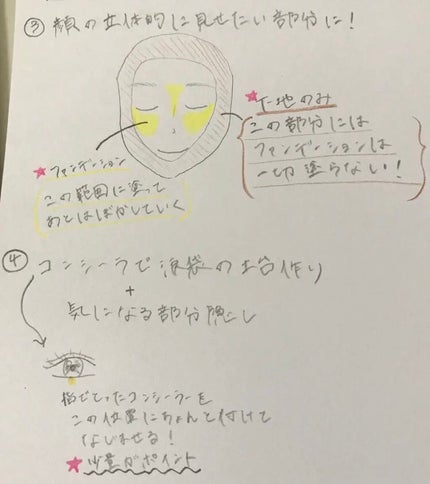 ③ 顔の立体的に見せたい部分に!
★ファンデーション
この範囲に塗って
あとはぼかしていく
★下地のみ
この部分には
ファンデーションは
一切塗らない!
④ コンシーラで涙袋の土台作り
+
気になる部分隠し
指でとったコンシーラーを
この位置にちょんと付けて
なじませる!
★少量がポイント